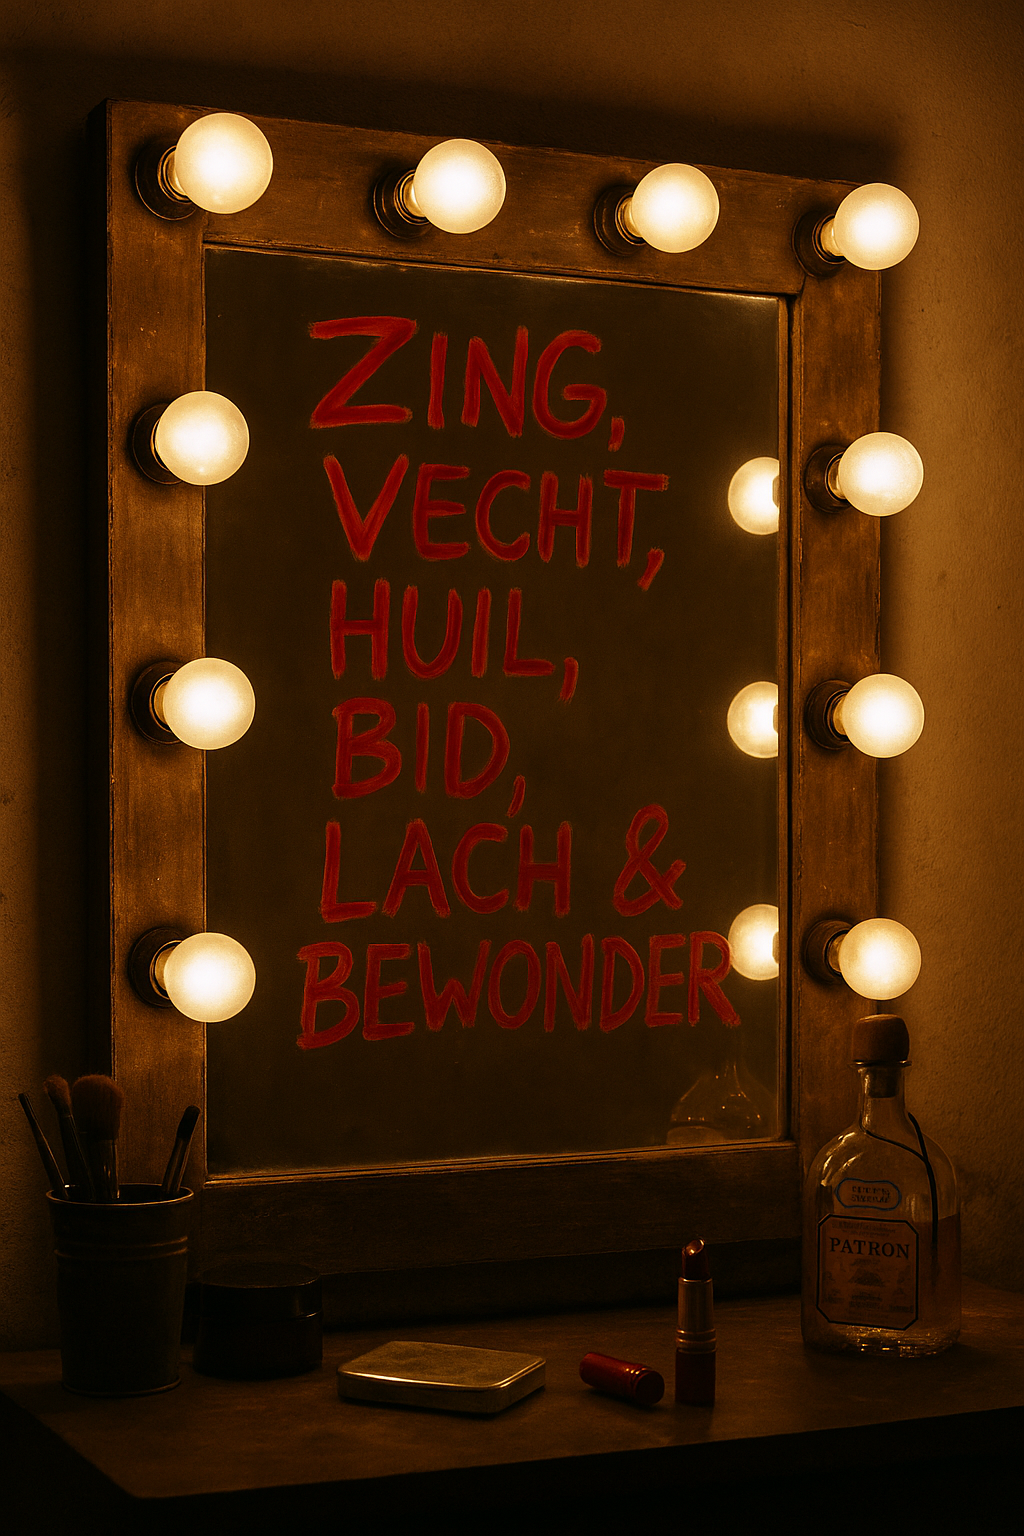 ZING,
VECHT,
HUIL,
BID,
LACH &
BEWONDER
PATRON